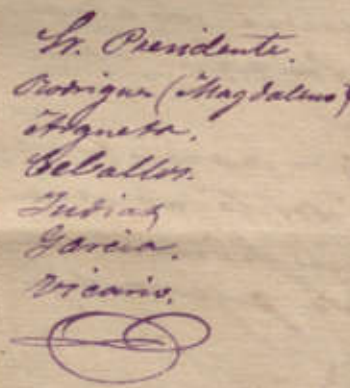 Sr. Presidente.
Rodriguez (Magdaleno)
Argueta.
Ceballos.
Indias
Garcia.
Vicario.